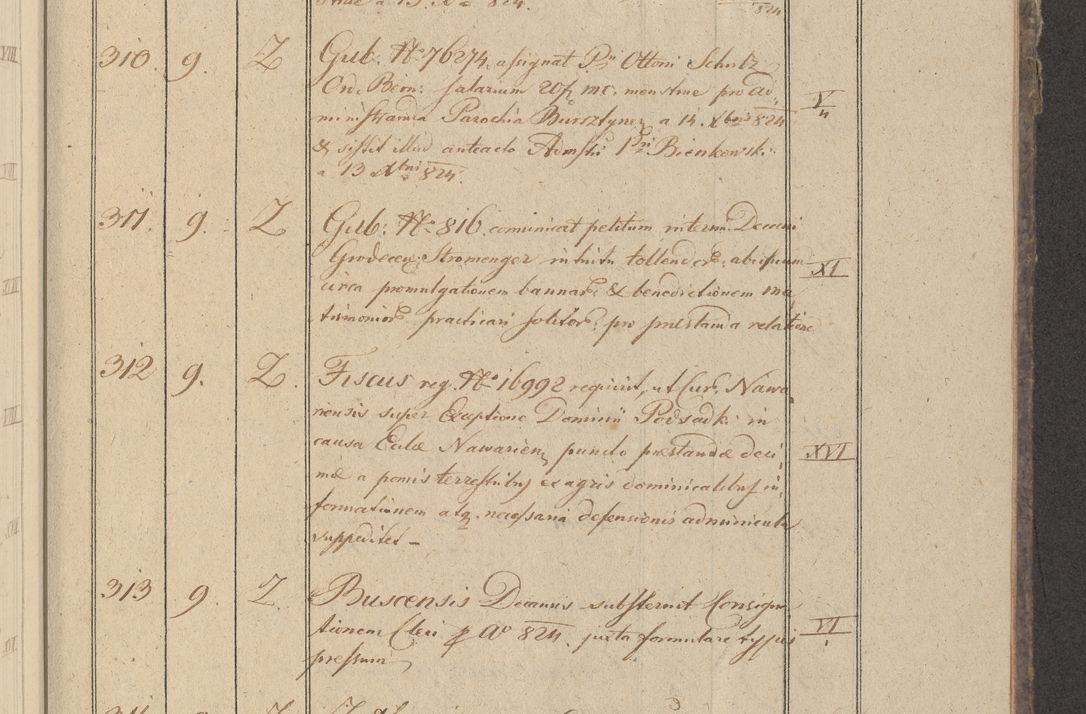 310. 9. Z Gub. No 76274. assignat Pri Ottoni Schultz
Ord. Bern: salarium Wfl mc. menstrue pro ad
ministranda Parochia Bursztynen a 14. Xbris 824 V/4
& sistit illud anteacto Admstri Pri Bienkowski
a 13 Xbris 824.
311. 9. Z Gub: No 816. comunicat petitum interim. Decani
Grodecen. Stromenger intuitu tollendor. abusuum XI
circa promulgationem bannor. & benedictionem ma
trimonior. practicari solitor: pro praestanda relatione
312 9. Z. Fiscus reg. No 16992 requirit, ut Cur. Nawa
riensis super Exceptione Dominii Podsadki in
causa Eccae Nawarien, puncto praestandae deci XVI
mae a pomis terrestribus ex agris dominicalibus in
formationem atq. necessaria defensionis adminicula
suppeditet –
313 9 Z. Buscensis Decanus substernit Consigna
tionem Cleri p Ao 824. juxta formulare typis VI
pressum